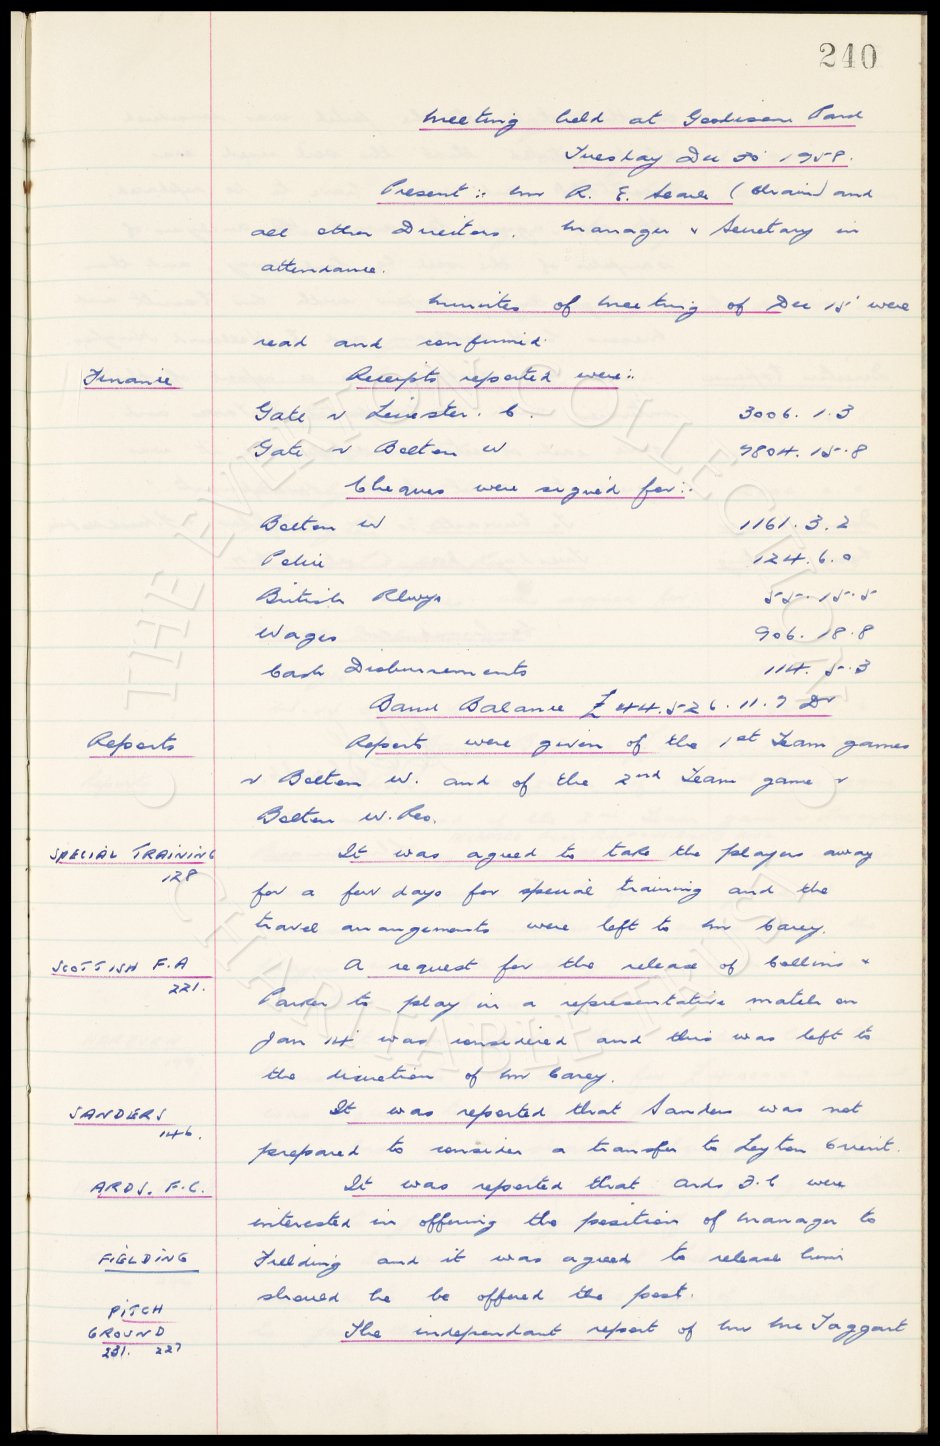 240
Meeting held at Goodison Park
Tuesday Dec 30' 1958.
Present :- Mr R. E. Searle (Chair) and
all other Directors. Manager & Secretary in
attendance.
Minutes of Meeting of Dec 15' were
read and confirmed.
Finance Receipts reported were:-
Gate v Leicester. C. 3006. 1. 3
Gate v Bolton W 7804. 15. 8
Cheques were signed for:-
Bolton W 1161. 3. 2
Police 124. 6. 0
British Rlwys 55. 15. 5
Wages 906. 18. 8
Cash Disbursements 114. 5. 3
Bank Balance £44.526. 11. 7 Dr
Reports Reports were given of the 1st Team games
v Bolton W. and of the 2nd Team game v
Bolton W. Res.
SPECIAL TRAINING It was agreed to take the players away
128
for a few days for special training and the
travel arrangements were left to Mr Carey.
SCOTTISH F.A A request for the release of Collins &
221.
Parker to play in a representative match on
Jan 14' was considered and this was left to
the discretion of Mr Carey.
SANDERS It was reported that Sanders was not
146.
prepared to consider a transfer to Leyton Orient.
ARDS. F.C. It was reported that Ards F.C were
interested in offering the position of Manager to
FIELDING Fielding and it was agreed to release him
should he be offered the post.
PITCH
GROUND The independant report of Mr McTaggart
231. 227
© THE EVERTON COLLECTION
CHARITABLE TRUST